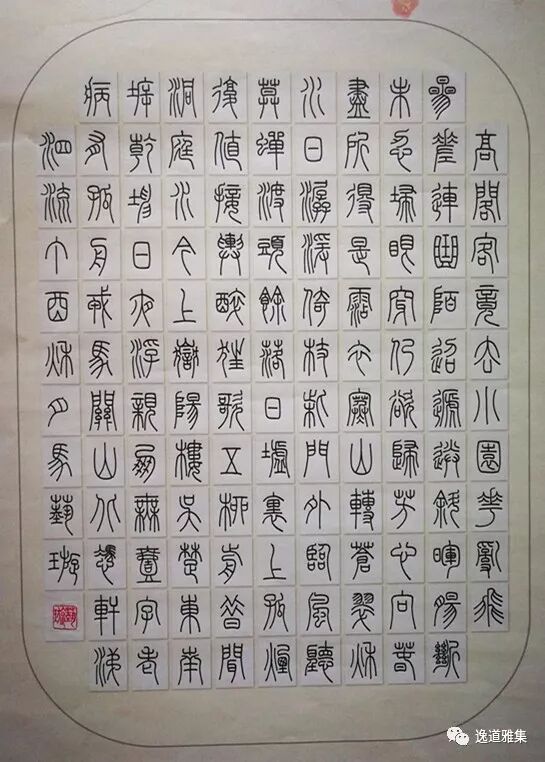 高閣客竟去小園花亂飛
參差連曲陌迢遞送斜暉腸斷
未忍掃眼穿仍欲歸芳心向春
盡所得是霑衣寒山轉蒼翠秋
水日潺湲倚杖柴門外臨風聽
莫蟬渡頭餘落日墟裏上孤煙
復值接輿醉狂歌五柳前昔聞
洞庭水今上嶽陽樓吳楚東南
坼乾坤日夜浮親朋無壹字老
病有孤舟戎馬關山北憑軒涕
泗流丁酉秋月馬藝璇
逸道雅集